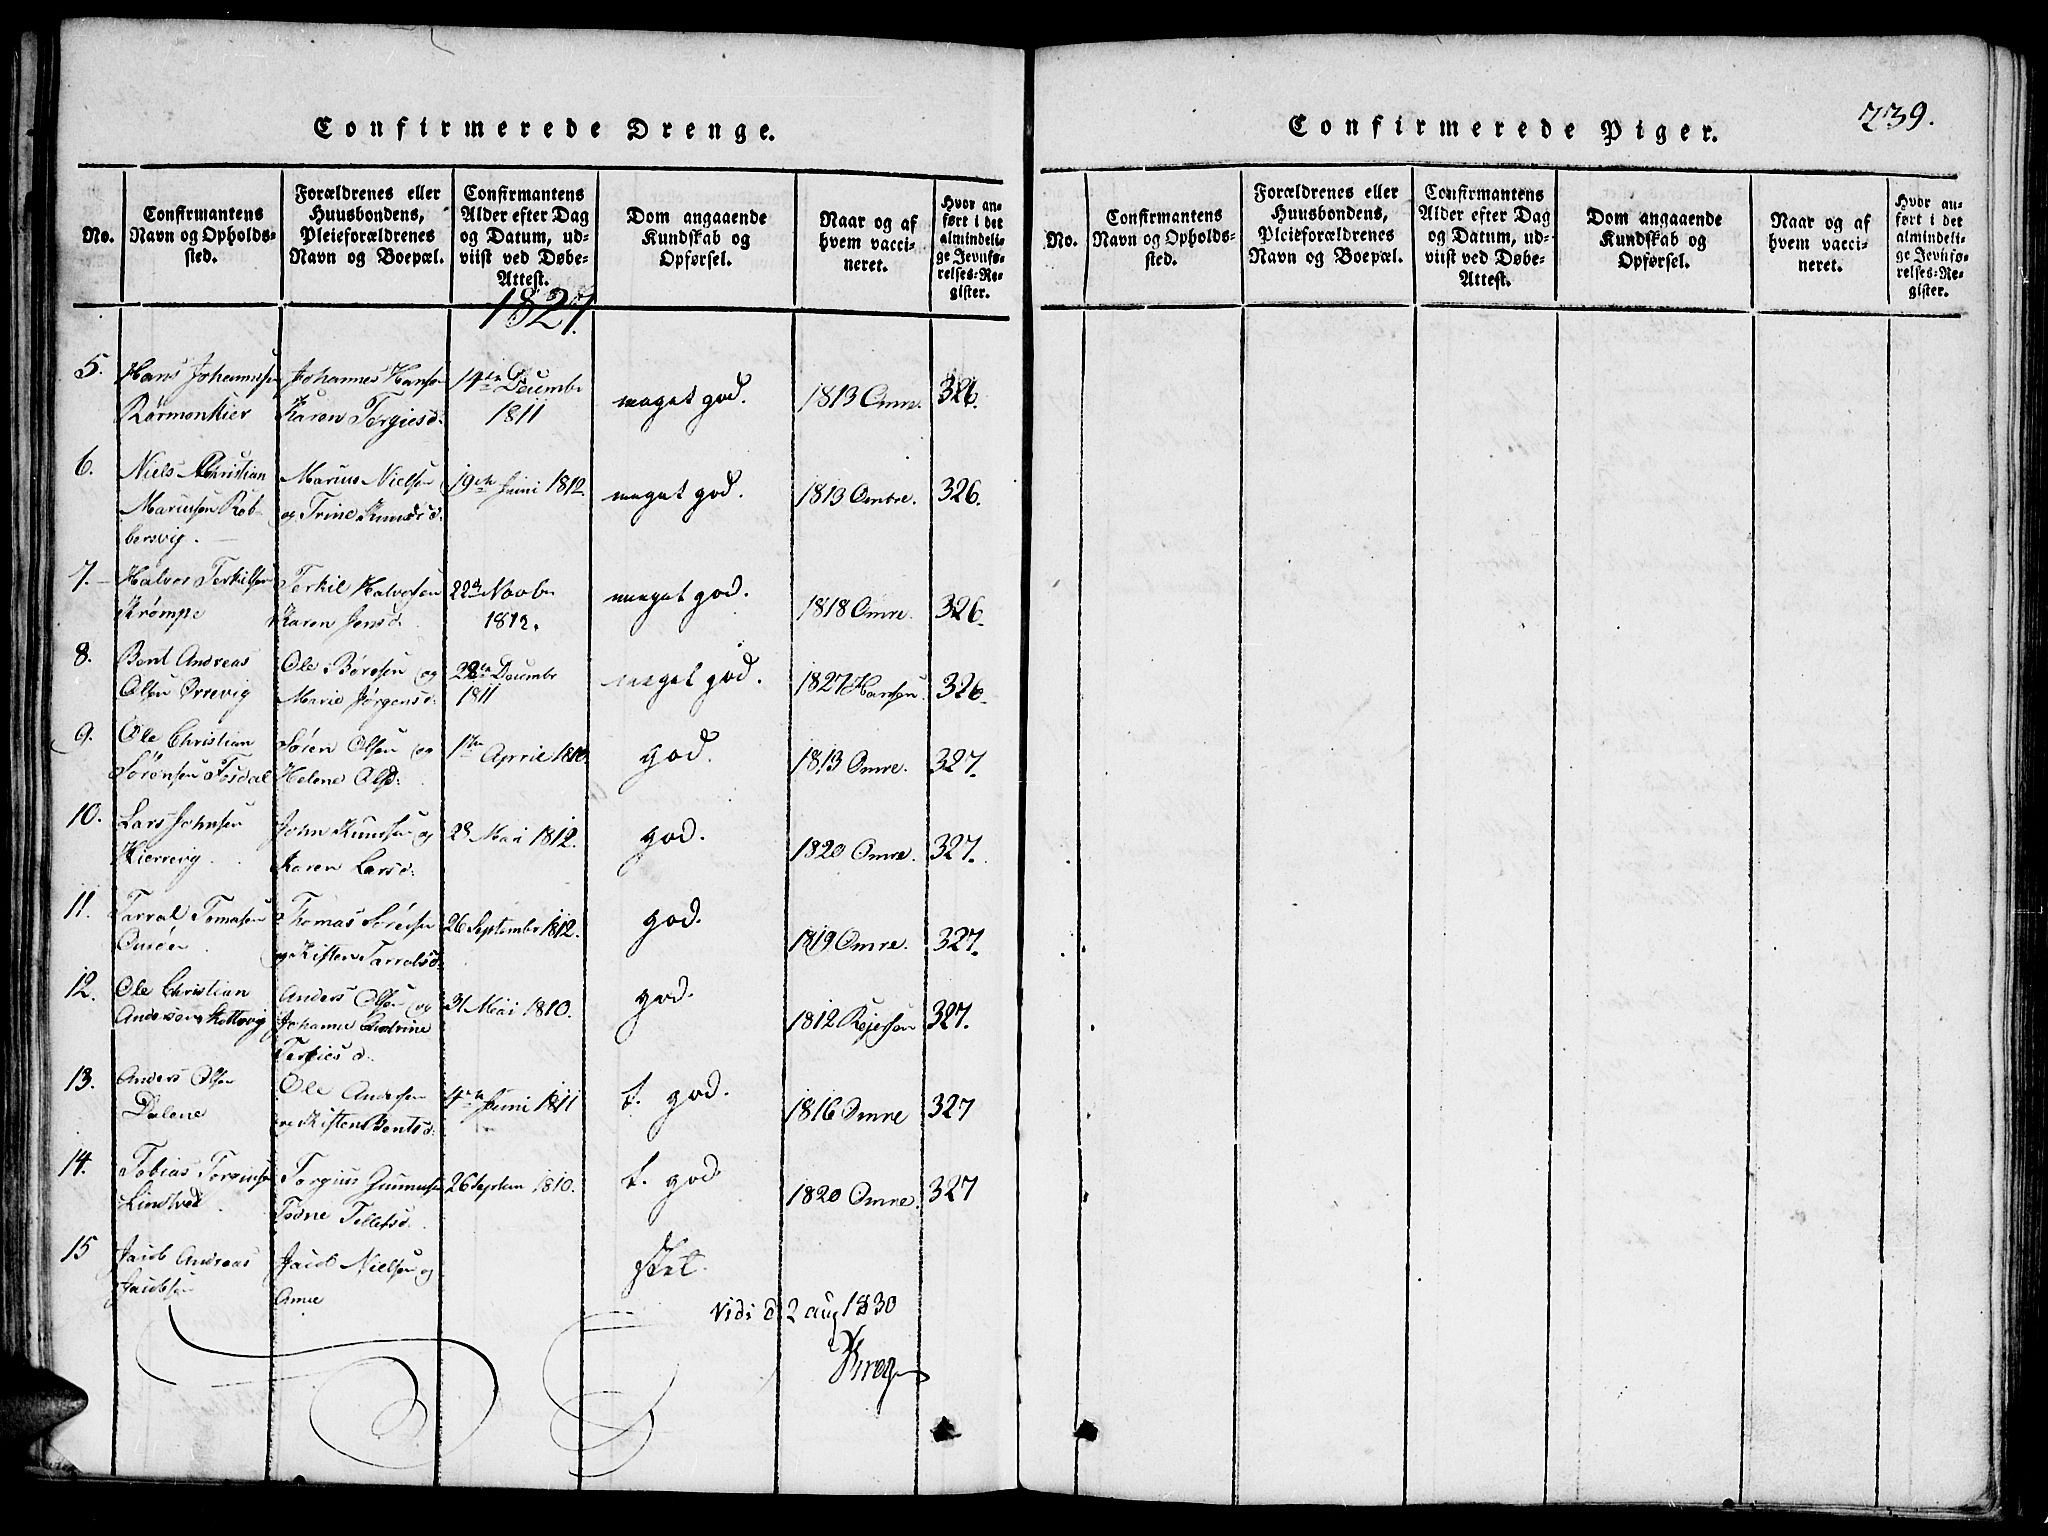 Confirmerede Drenge.
No.
Confirmantens
Navn og Opholds-
sted.
Forældrenes eller
Huusbondens,
Pleieforældrenes
Navn og Boepæl.
Confirmantens
Alder efter Dag
og Datum, ud-
viist ved Døbe-
Attest.
Dom angaaende
Kundskab og
Opførsel.
Naar og af
hvem vacci-
neret.
Hvor an-
ført i det
almindeli-
ge Jevnfø-
relses-Re-
gister.
1827.
5.
Hans Johannesen
Johannes Hansen
14de Decembr
1811
meget god.
1813 Omre.
326.
Karen Tergiesd:
6.
Niels Christian
Mariusen Rob-
bersvig.
Marius Nielsen
og Trine Knudsd:
19de Juni 1812.
meget god.
1813 Ombre.
326.
7.
Halvor Terkilsen
Krømpe
Terkil Halvorsen
Karen Jensd:
22d Novbr
1812.
meeget god.
1818 Omre.
326.
8.
Bent Andreas
Olsen Ørrevig
Ole Børesen og
Marie Jørgensd:
Decembr
1811
meget god.
1827 Hansen.
326.
9.
Ole Christian
Sørensen Fosdal
Sören Olsen og
Helene Olsd:
April
god.
1813 Omre.
327.
10.
Lars Johnsen
Kierrevig
John Knudsen og
Karen Larsd:
Mai 1812.
god.
1820 Omre.
327.
11.
Tarral Tomasen
Thomas Sörensen
og Kisten Tarralsd:
26 September 1812.
god.
1819 Omre.
327.
12.
Ole Christian
Andersen
Anders Olsen og
Johanne
Tergiesd:
31 Mai 1810.
god.
1812 Rejersen
327.
13.
Anders Olsen
Dalene
Ole Andersen
og Kisten Bentsd:
4de Juni 1811
t. god.
1816 Omre
327
14.
Tobias Torgiusen
Lindtved
Torgius Gunnusen
Tone Tellefsd.
26 Septem 1810.
t. god
1820 Omre.
327
15
Jacob Andreas
Jacobsen
Jacob Nielsen og
Anne
slet.
Vidi d 2 aug 1830
Confirmerede Piger.
739.
No.
Confirmantens
Navn og Opholds-
sted.
Forældrenes eller
Huusbondens,
Pleieforældrenes
Navn og Boepæl.
Confirmantens
Alder efter Dag
og Datum, ud-
viist ved Døbe-
Attest.
Dom angaaende
Kundskab og
Opførsel.
Naar og af
hvem vacci-
neret.
Hvor an-
ført i det
almindeli-
ge Jevnfø-
relses-Re-
gister.